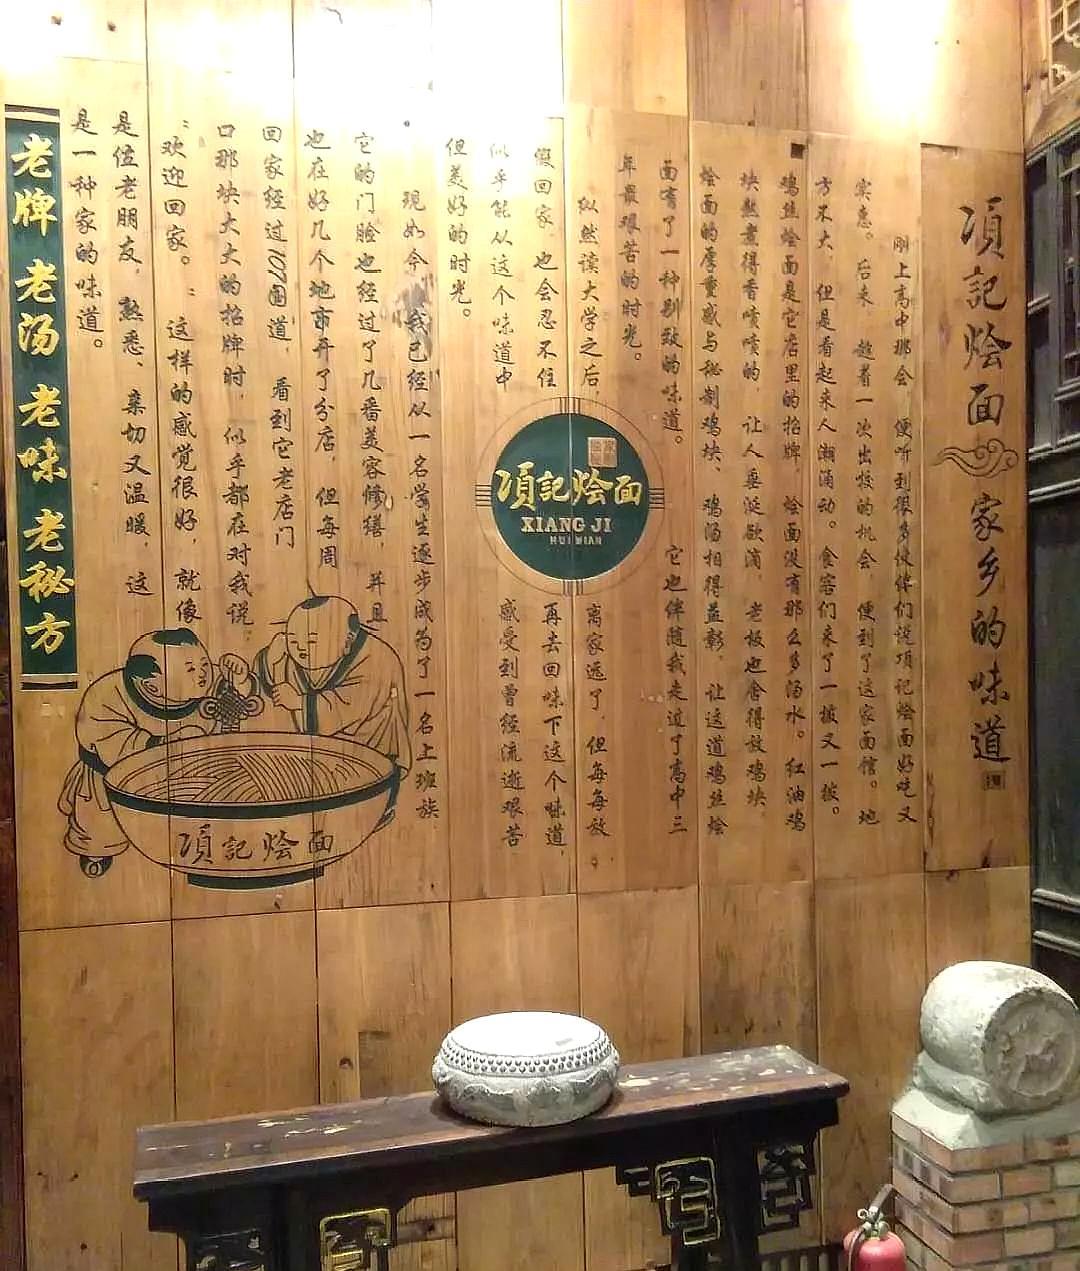 項記烩面 家乡的味道
刚上高中那会 便听到很多伙伴们说项记烩面好吃又
实惠。后来 趁着一次出校的机会，便到了这家面馆。地
方不大，但是看起来人潮涌动。食客们来了一拨又一拨。
鸡丝烩面是它店里的招牌，烩面没有那么多汤水。红油鸡
块熬煮得香喷喷的，让人垂涎欲滴，老板也舍得放鸡块，
烩面的厚重感与秘制鸡块、鸡汤相得益彰，让这道鸡丝烩
面有了一种别致的味道。 它也伴随我走过了高中三
年最艰苦的时光。
纵然读大学之后，离家远了，但每每放
假回家，也会忍不住再去回味下这个味道，
似乎能从这个味道中感受到曾经流逝艰苦
但美好的时光。
现如今，我已经从一名学生逐步成为了一名上班族，
它的门脸也经过了几番美容修缮，并且
也在好几个地市开了分店，但每周
回家经过107国道，看到它老店门
口那块大大的招牌时，似乎都在对我说
：欢迎回家。：这样的感觉很好，就像
是位老朋友，熟悉、亲切又温暖，这
是一种家的味道。
項記烩面
XIANG JI
HUI MIAN
項記烩面
老牌 老汤 老味 老秘方